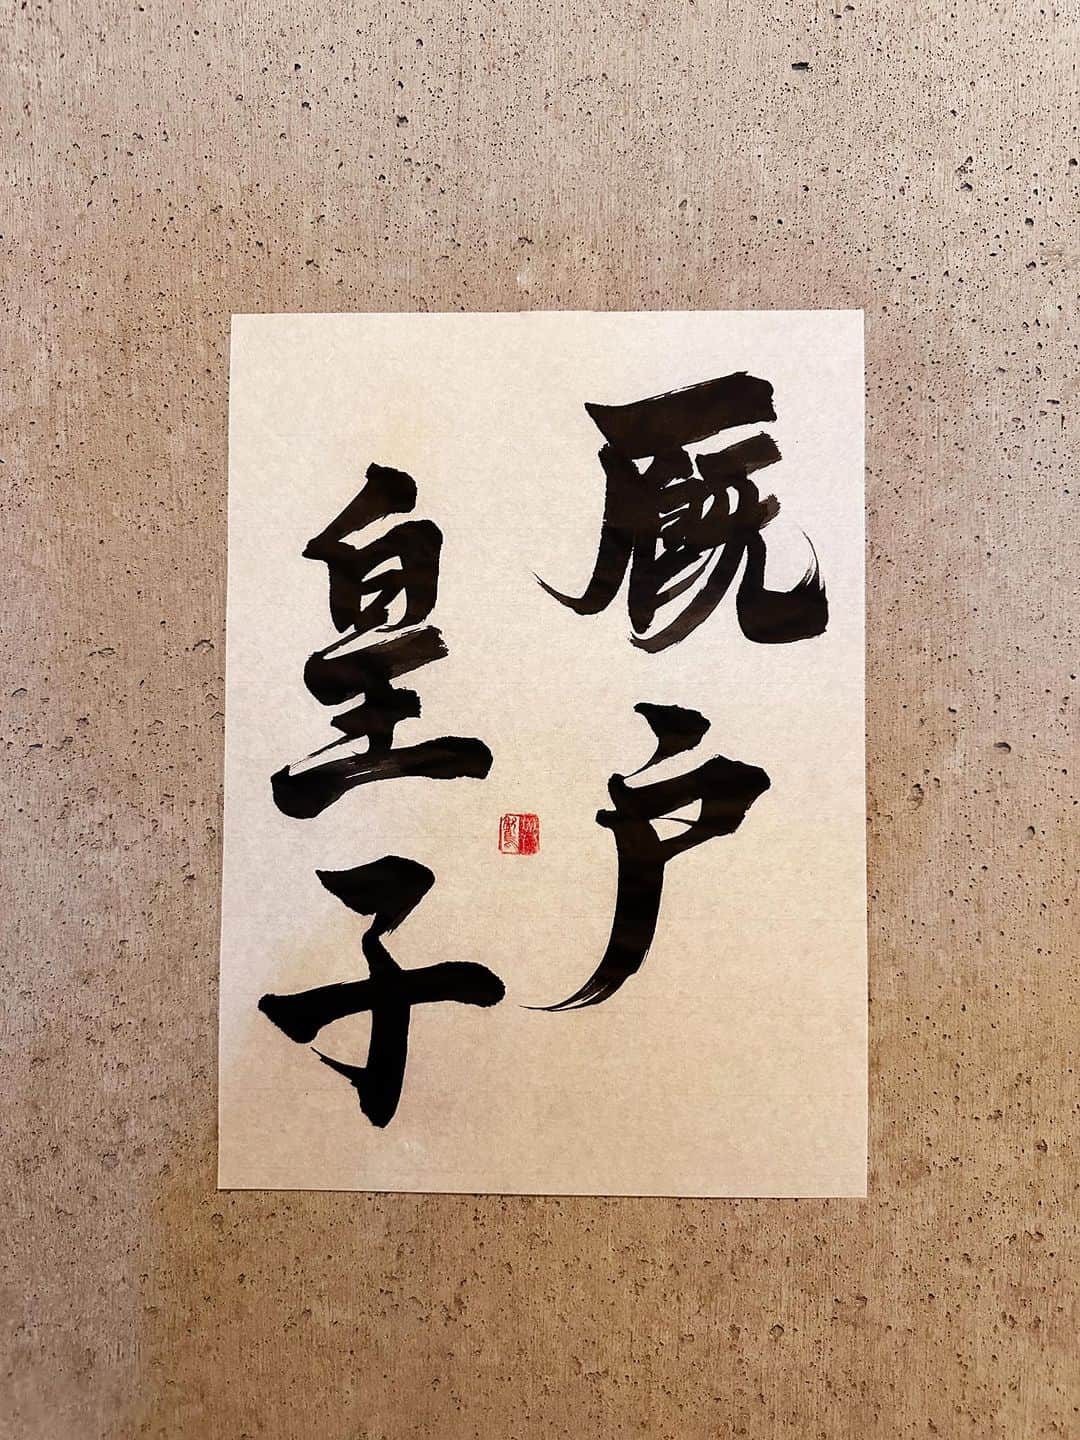 厩戸
皇子